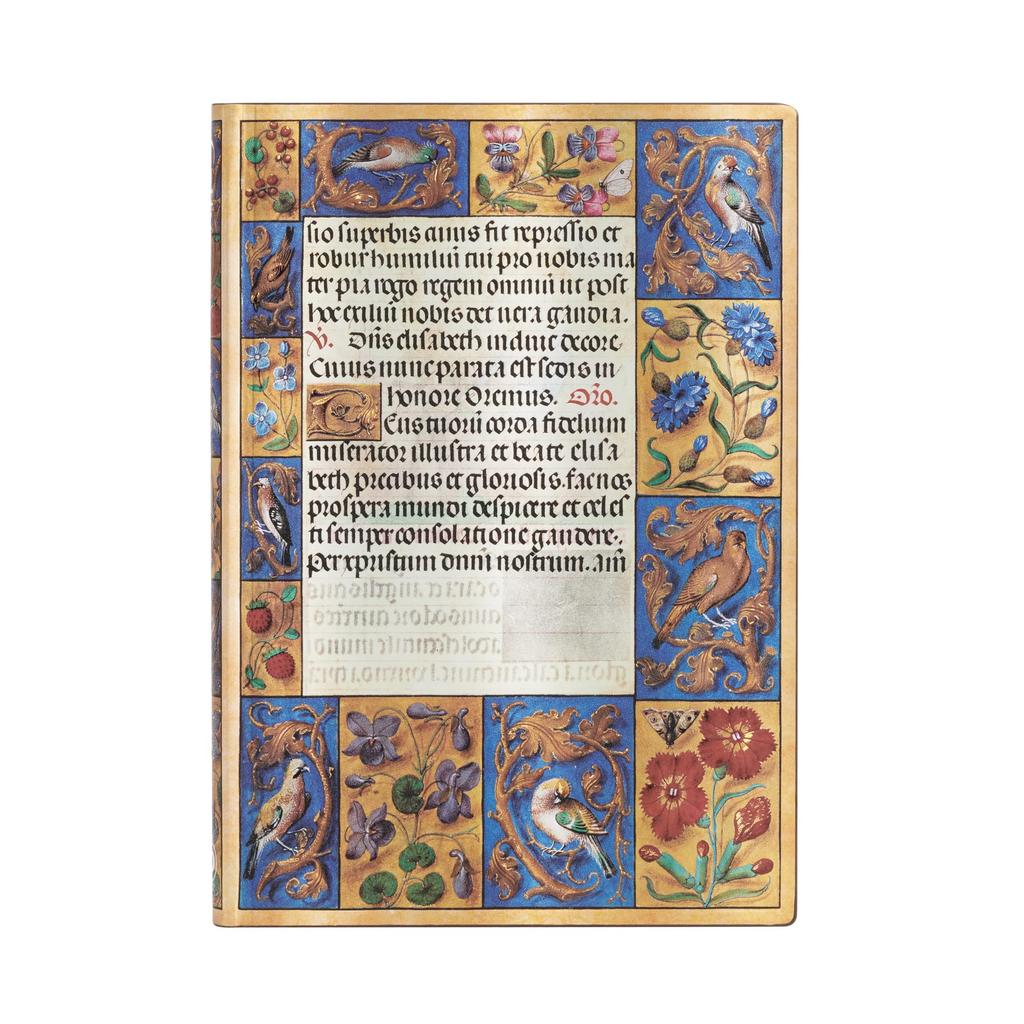 sio superbis cuius fit repressio et
robur humiliū cui pro nobis ma
ter pia rogo regem omniū ut post
hoc exiliū nobis det uera gaudia.
V. Dn̄s elisabeth induit decore
Cuius nunc parata est sedis in
honore Oremus. Or̄o.
Deus tuorū corda fidelium
miserator illustra et beate elisa
beth precibus et gloriosis. fac nos
prospera mundi despicere et celes
ti semper consolatione gaudere.
Per xpristum dnm̄ nostrum. am̄